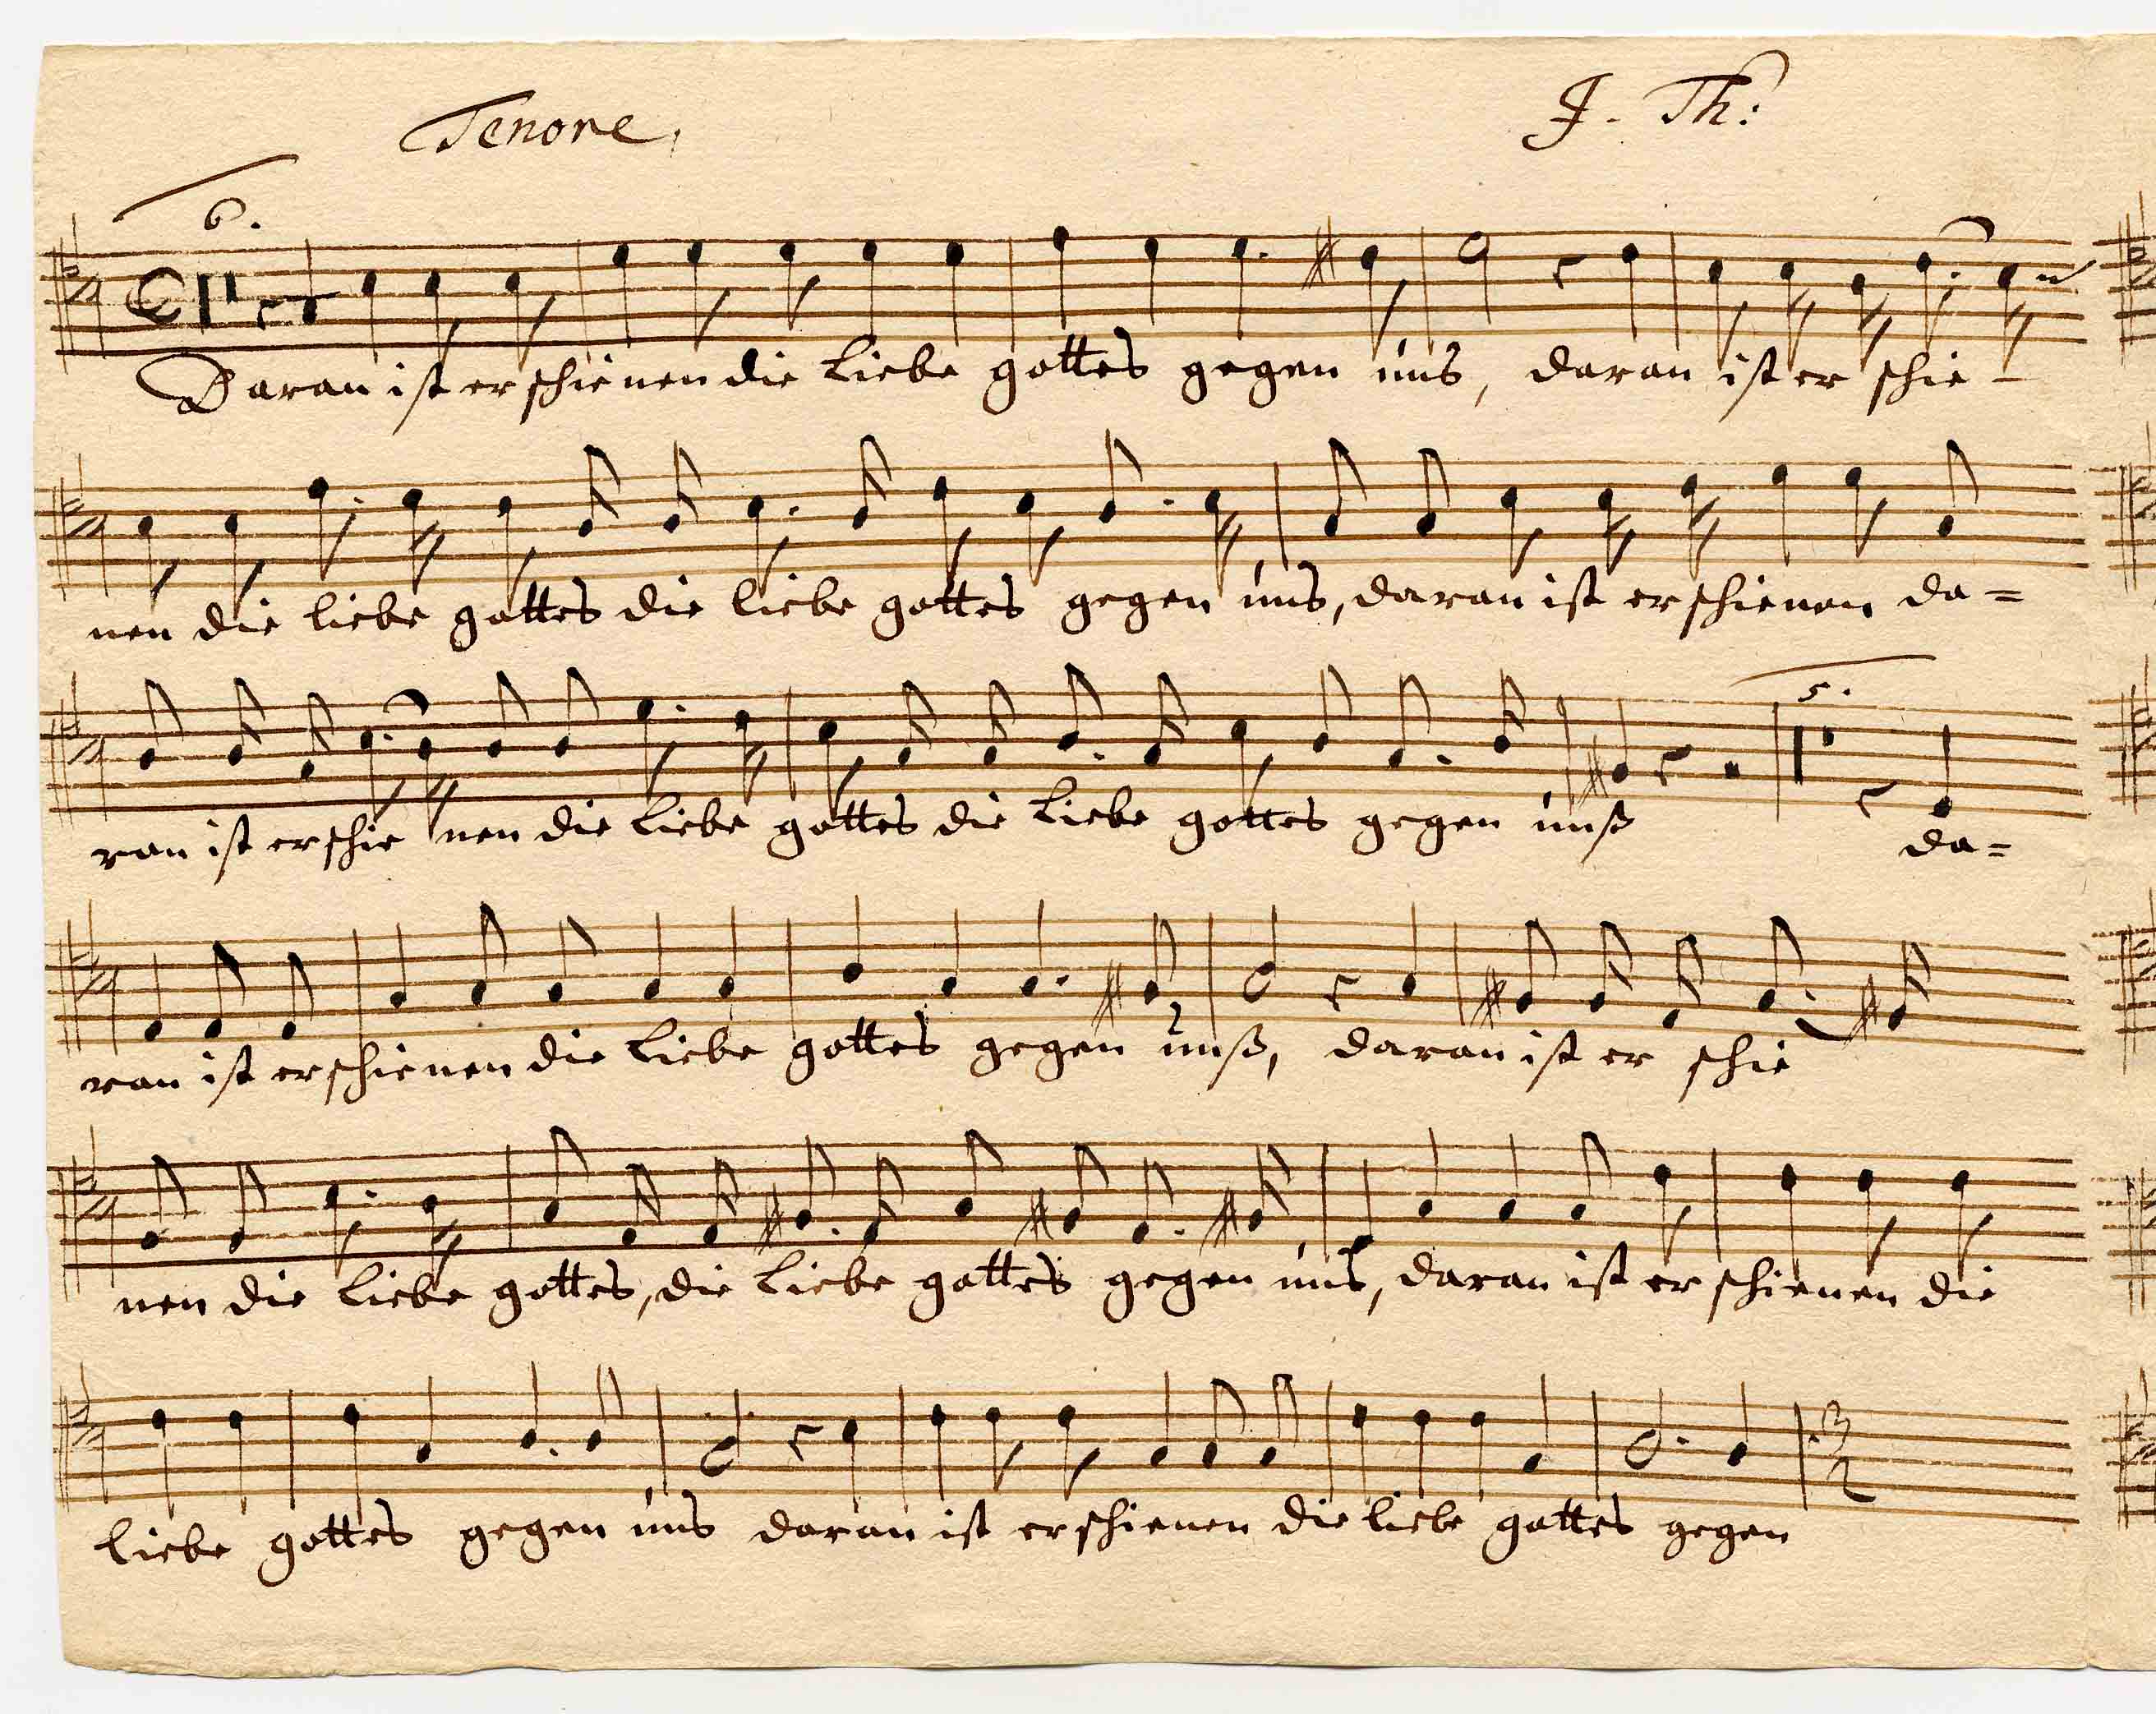 Tenore, J. Th:
6.
Daran ist erschienen die Liebe gottes gegen uns, daran ist er schie-
nen die liebe gottes die liebe gottes gegen uns, daran ist erschienen da=
ran ist erschie nen die Liebe gottes die Liebe gottes gegen unß
5.
da=
ran ist erschienen die Liebe gottes gegen unß, daran ist er schie
nen die Liebe gottes, die Liebe gottes gegen uns, daran ist er schienen die
liebe gottes gegen uns daran ist erschienen die liebe gottes gegen